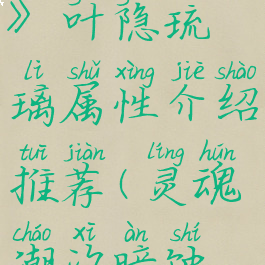 》叶隐琉
lí shǔ xìng jiè shào
璃属性介绍
tuī jiàn líng hún
推荐(灵魂
cháo xī àn shí
潮汐暗蚀